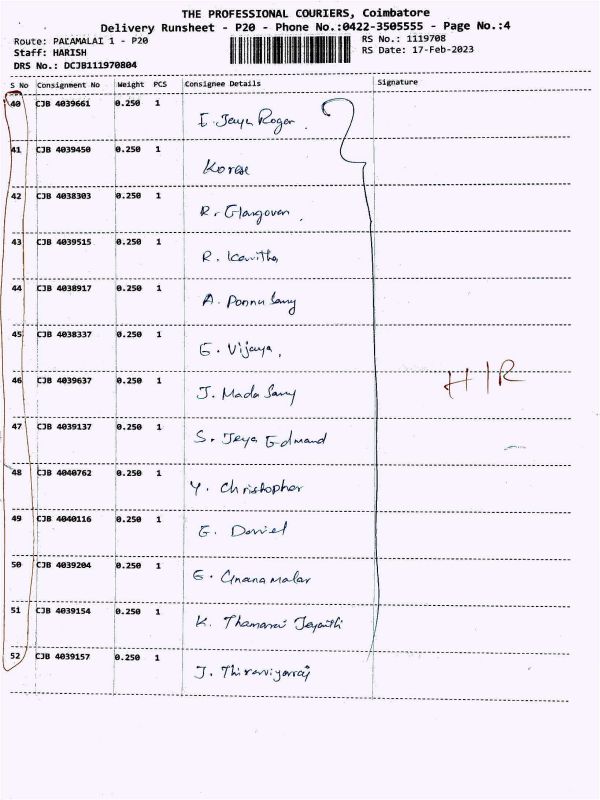 THE PROFESSIONAL COURIERS, Coimbatore
Delivery Runsheet - P20 - Phone No.:0422-3505555 - Page No.:4
Route: PALAMALAI 1 - P20 RS No.: 1119708
Staff: HARISH RS Date: 17-Feb-2023
DRS No.: DCJB111970804
S No Consignment No Weight PCS Consignee Details Signature
40 CJB 4039661 0.250 1 I. Jeya Roger.
41 CJB 4039450 0.250 1 Korese
42 CJB 4038303 0.250 1 R. Elangovan.
43 CJB 4039515 0.250 1 R. Kavitha
44 CJB 4038917 0.250 1 A. Ponnu Samy
45 CJB 4038337 0.250 1 G. Vijaya.
46 CJB 4039637 0.250 1 J. Mada Samy
H/R
47 CJB 4039137 0.250 1 S. Jeya Edmand
48 CJB 4040762 0.250 1 Y. Christopher
49 CJB 4040116 0.250 1 G. Daniel
50 CJB 4039204 0.250 1 G. Gnana malar
51 CJB 4039154 0.250 1 K. Thamarai Jeyanthi
52 CJB 4039157 0.250 1 J.